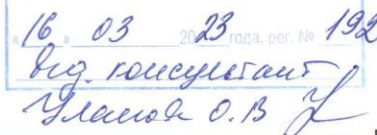 «16» 03 2023 года, рег. № 192
вед. консультант
О.В